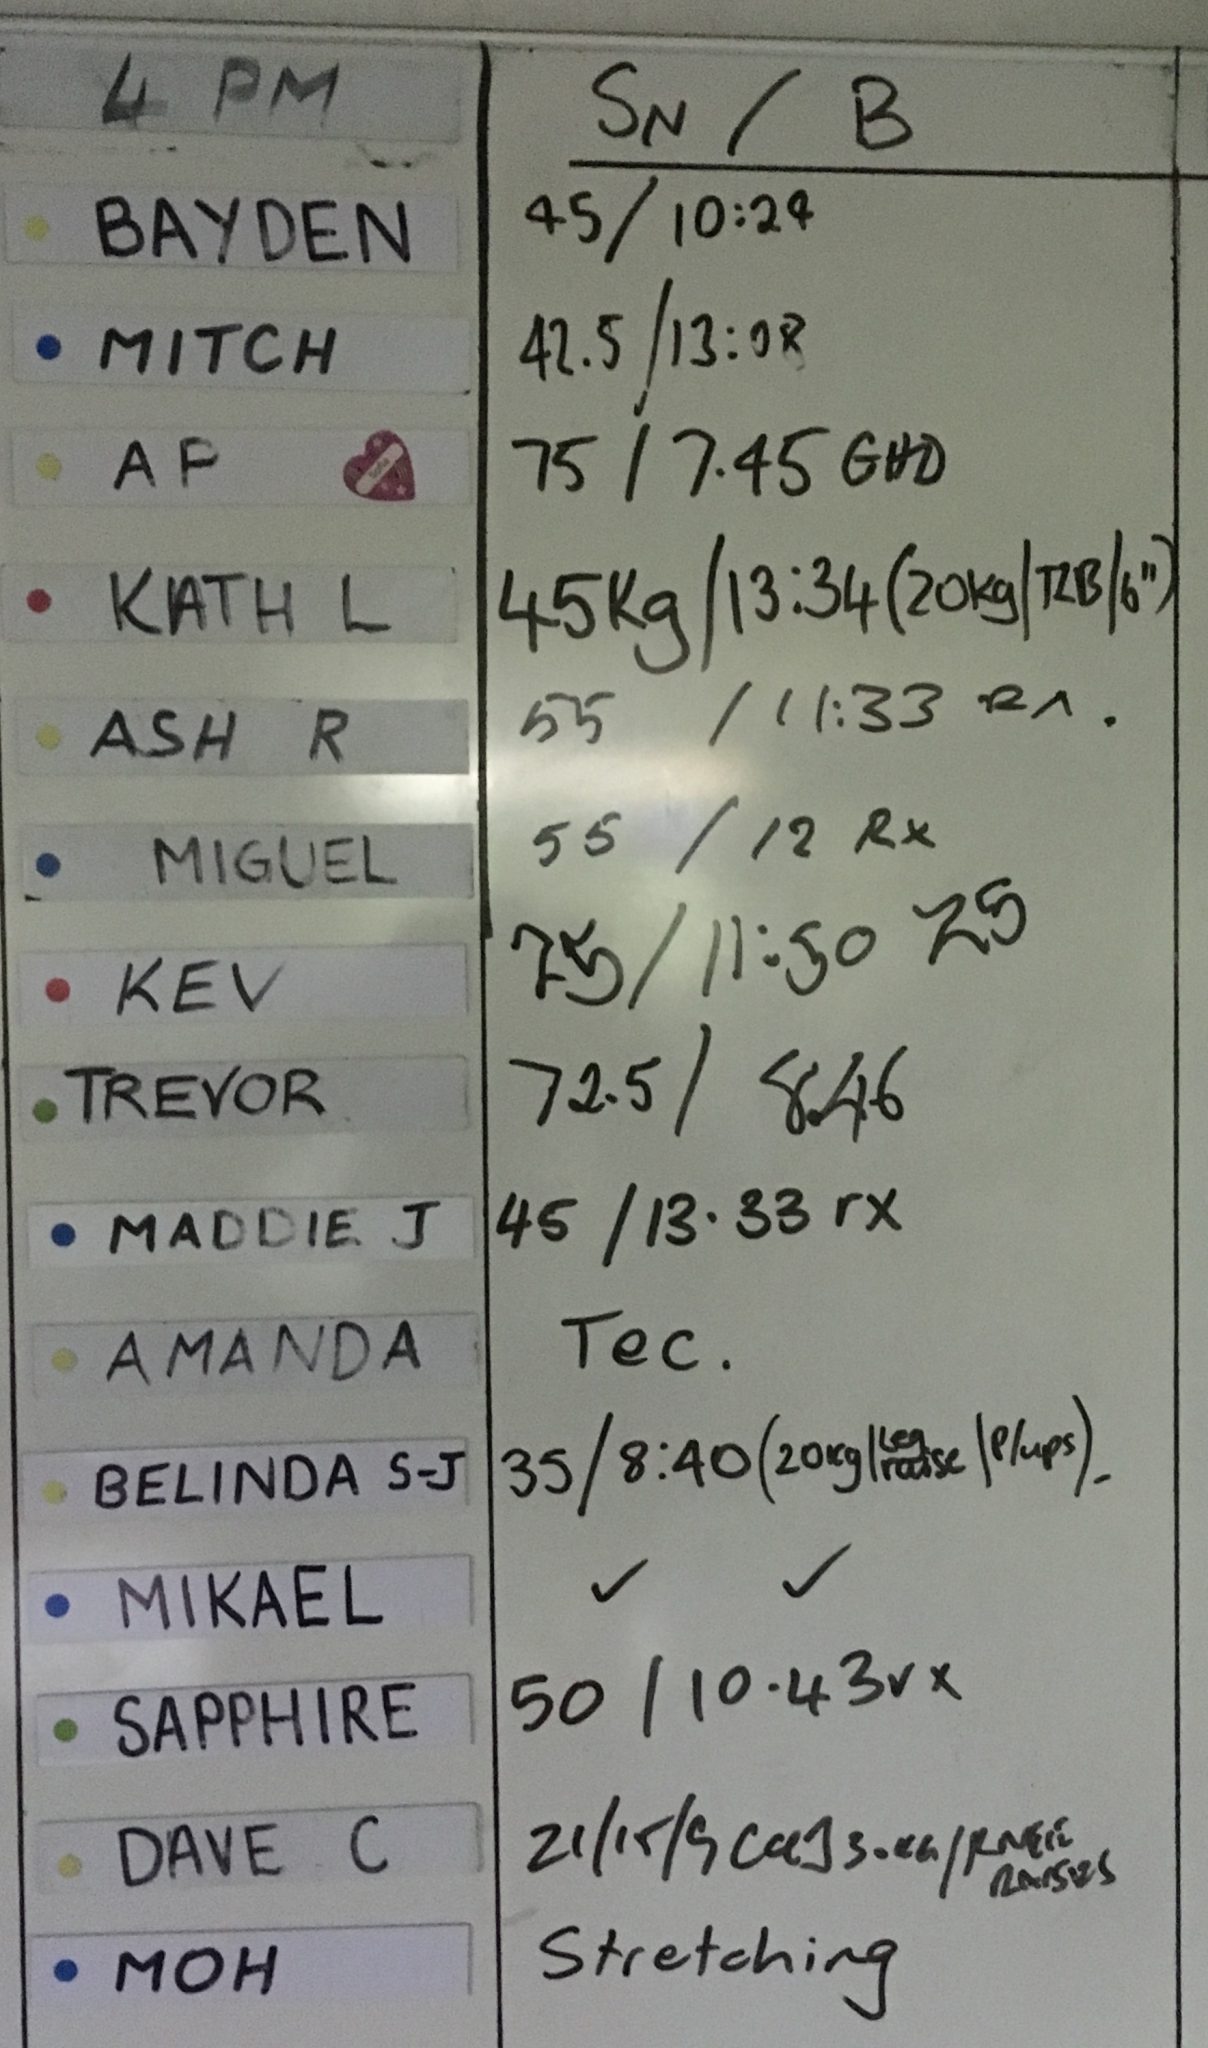 4 PM SN / B
BAYDEN 45/10:24
MITCH 42.5/13:08
AP 75/7.45 GHD
KATH L 45Kg/13:34 (20kg/T2B/6")
ASH R 55 / 11:33 Rx.
MIGUEL 55 / 12 Rx
KEV 75/11:50 25
TREVOR 72.5/ 8:46
MADDIE J 45 /13.33 rx
AMANDA Tec.
BELINDA S-J 35/8:40 (20kg/Leg raise/P/ups)
MIKAEL ✓ ✓
SAPPHIRE 50 / 10.43rx
DAVE C 21/15/9 /KNEE
RAISES
MOH Stretching